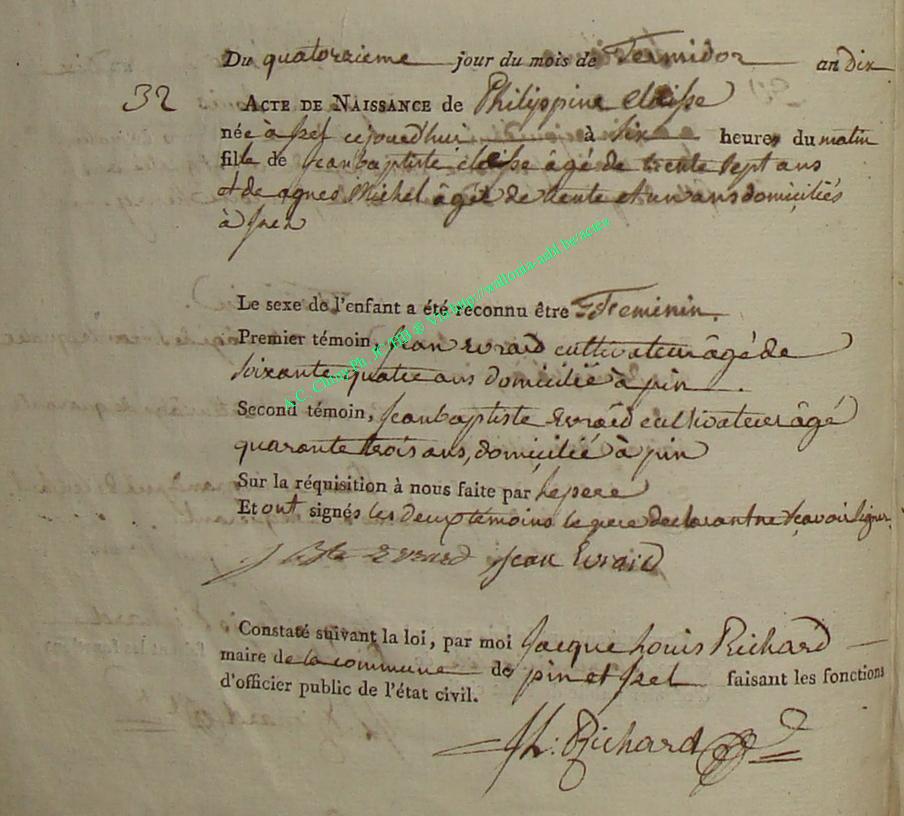 Du quatorzieme jour du mois de Termidor an dix
32
ACTE DE NAISSANCE de Philippine Claisse
née à Izel cejourdhui à six heures du matin
fille de Jean baptiste claisse âgé de trente sept ans
et de agnes Michel âgée de trente et un ans domiciliés
à Izel
Le sexe de l'enfant a été reconnu être Feminin.
Premier témoin, Jean Evrard cultivateur âgé de
soixante quatre ans domicilié à pin
Second témoin, Jean baptiste Evrard cultivateur âgé
quarante trois ans, domicilié à pin
Sur la réquisition à nous faite par le pere
Et ont signés les deux témoins le pere declarant ne scavoir signer.
J Bste Evrard Jean Evrard
Constaté suivant la loi, par moi Jacque Louis Richard
maire de la commune de pin et Izel faisant les fonctions
d'officier public de l'état civil.
JL: Richard
A.C. Chiny Ph. JC HBI © Via http://wallonia-asbl.be/acara